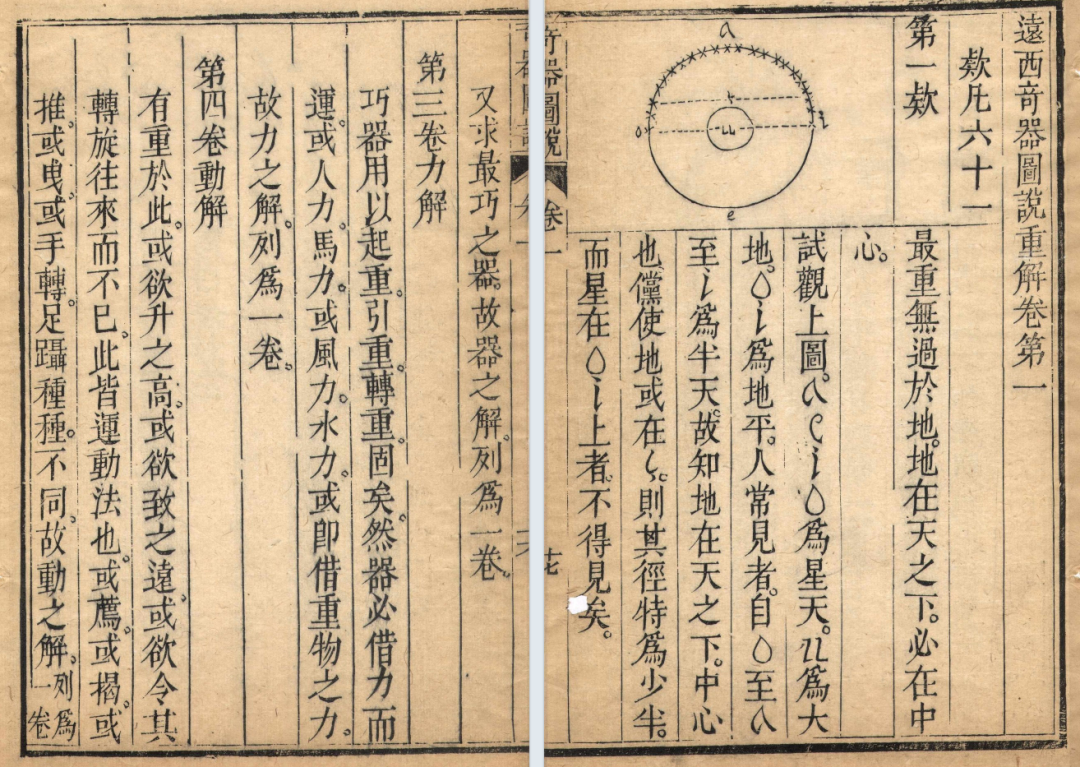 遠西竒器圖說重解卷第一
欵凡六十一
第一欵
a
o
i
e
最重無過於地。地在天之下。必在中
心。
試觀上圖。a e i o 爲星天。u 爲大
地。o i 爲地平。人常見者。自 o 至 a
至 i 爲半天。故知地在天之下。中心
也。儻使地或在 。則其徑特爲少半。
而星在 o i 上者。不得見矣。
竒器圖說 卷一
又求最巧之器。故器之解。列爲一卷。
第三卷力解
巧器用以起重。引重。轉重。固矣。然器必借力而
運。或人力。馬力。或風力。水力。或即借重物之力。
故力之解。列爲一卷。
第四卷動解
有重於此。或欲升之高。或欲致之遠。或欲令其
轉旋往來而不已。此皆運動法也。或薦。或揭。或
推。或曳。或手轉。足躡種種。不同。故動之解。列爲一卷